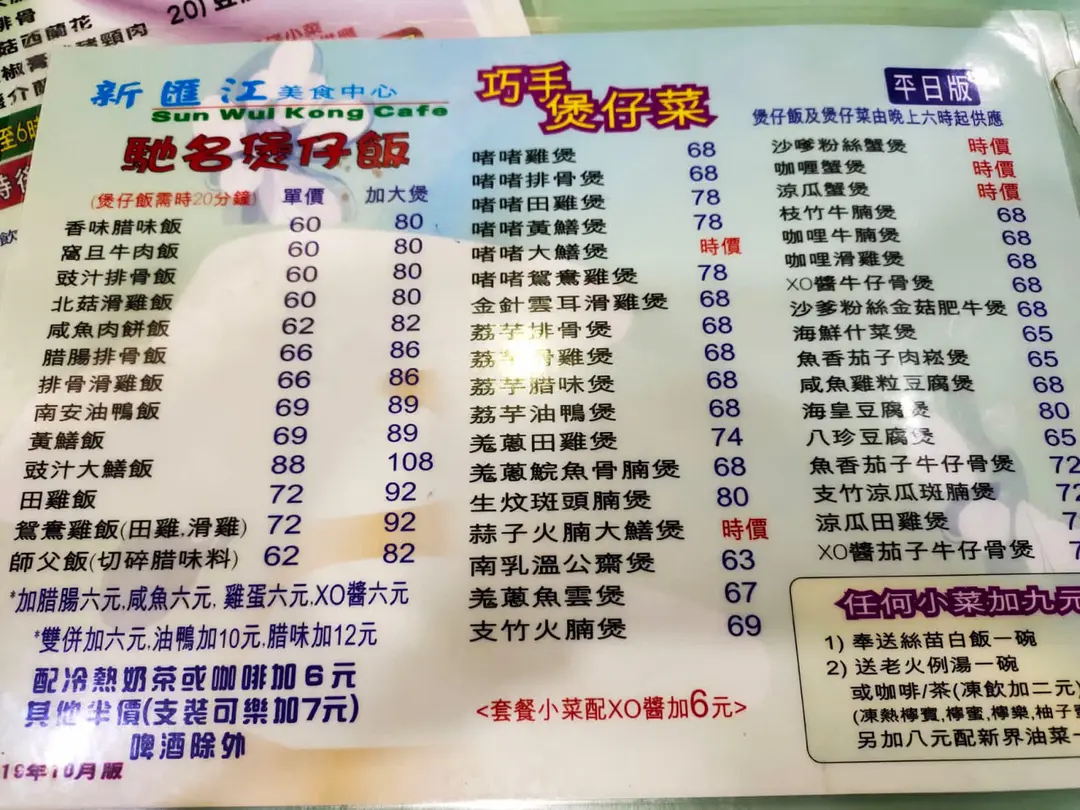 20)
排骨
菇西蘭花
豬頸肉
新匯江美食中心
Sun Wui Kong Cafe
馳名煲仔飯
(煲仔飯需時20分鐘) 單價 加大煲
香味腊味飯 60 80
窩且牛肉飯 60 80
豉汁排骨飯 60 80
北菇滑雞飯 60 80
咸魚肉餅飯 62 82
腊腸排骨飯 66 86
排骨滑雞飯 66 86
南安油鴨飯 69 89
黃鱔飯 69 89
豉汁大鱔飯 88 108
田雞飯 72 92
鴛鴦雞飯(田雞,滑雞) 72 92
師父飯(切碎腊味料) 62 82
*加腊腸六元,咸魚六元, 雞蛋六元,XO醬六元
*雙併加六元,油鴨加10元,腊味加12元
配冷熱奶茶或咖啡加6元
其他半價(支裝可樂加7元)
啤酒除外
19年10月版
巧手煲仔菜
啫啫雞煲 68
啫啫排骨煲 68
啫啫田雞煲 78
啫啫黃鱔煲 78
啫啫大鱔煲 時價
啫啫鴛鴦雞煲 78
金針雲耳滑雞煲 68
荔芋排骨煲 68
荔芋滑雞煲 68
荔芋腊味煲 68
荔芋油鴨煲 68
羗蔥田雞煲 74
羗蔥鯇魚骨腩煲 68
生炆斑頭腩煲 80
蒜子火腩大鱔煲 時價
南乳溫公齋煲 63
羗蔥魚雲煲 67
支竹火腩煲 69
<套餐小菜配XO醬加6元>
平日版
煲仔飯及煲仔菜由晚上六時起供應
沙嗲粉絲蟹煲 時價
咖喱蟹煲 時價
涼瓜蟹煲 時價
枝竹牛腩煲 68
咖哩牛腩煲 68
咖哩滑雞煲 68
XO醬牛仔骨煲 68
沙爹粉絲金菇肥牛煲 68
海鮮什菜煲 65
魚香茄子肉崧煲 65
咸魚雞粒豆腐煲 68
海皇豆腐煲 80
八珍豆腐煲 65
魚香茄子牛仔骨煲 72
支竹涼瓜斑腩煲 72
涼瓜田雞煲 7
XO醬茄子牛仔骨煲
任何小菜加九元
1) 奉送絲苗白飯一碗
2) 送老火例湯一碗
或咖啡/茶(凍飲加二元)
(凍熱檸賓,檸蜜,檸樂,柚子
另加八元配新界油菜一